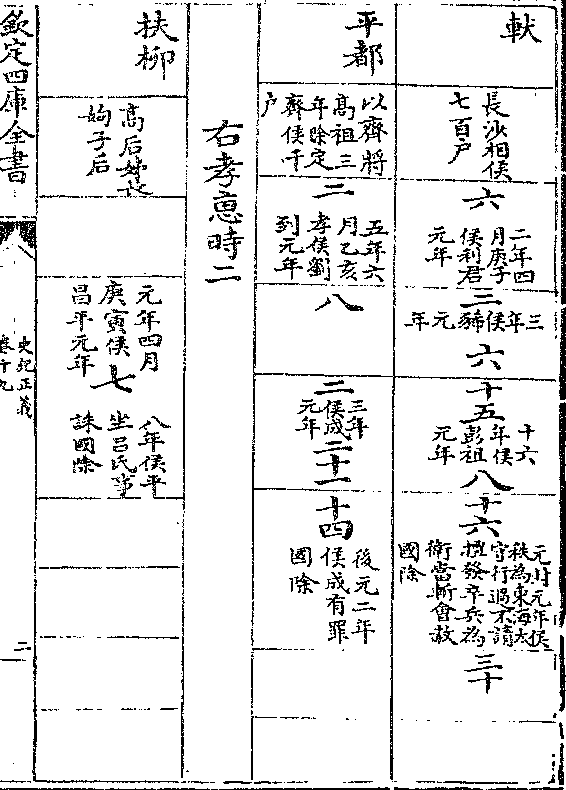 軑
長沙相侯
七百戶
六
二年四
月庚子
侯利君
元年
三
三年侯豨元年
六
十五
十六
年侯
彭祖
元年
八
十六
元封元年侯
秩為東海太
守行過不請
擅發卒兵為
衛當斬會赦
國除
三十
平都
以齊將
髙祖三
年降定
齊侯千
戶
二
五年六
月乙亥
孝侯劉
到元年
八
二
三年
侯成
元年
二十一
十四
後元二年
侯成有罪
國除
右孝惠時二
扶柳
髙后姊長
姁子后
元年四月
庚寅侯
昌平元年
七
八年侯平
坐吕氏事
誅國除
欽定四庫全書
史記正義
卷十九
二